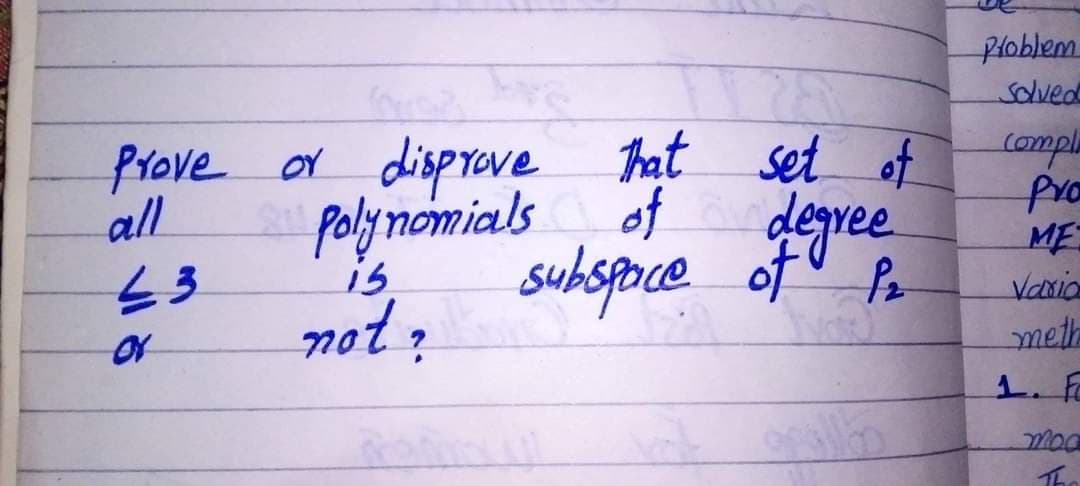 Prove or disprove that set of
all polynomials of degree
≤ 3 is subspace of P₂
or not?
problem
solved
metho
1.